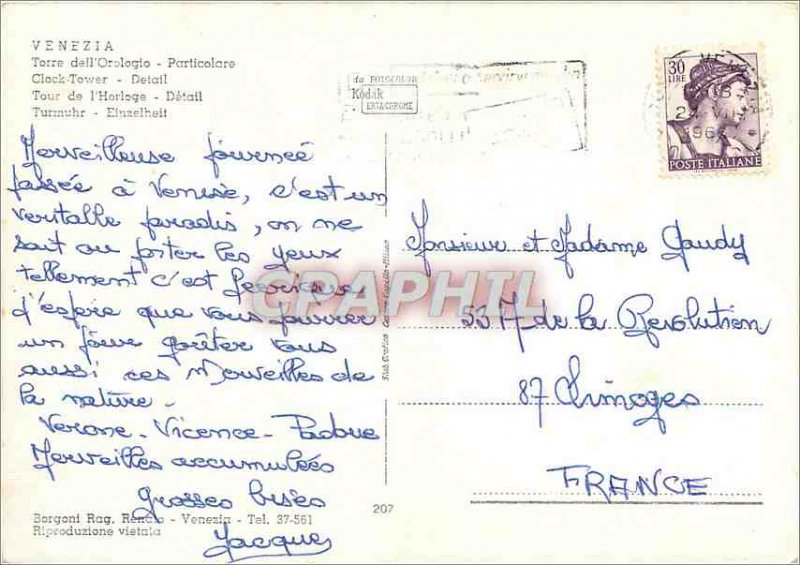 VENEZIA
Torre dell'Orologio - Particolare
Clock-Tower - Detail
Tour de l'Horloge - Détail
Turmuhr - Einzelheit
da FOTOCOLOR
Kodak
EKTACHROME
30
LIRE
POSTE ITALIANE
Merveilleuse journeé
passée à Venise, c'est un
veritable paradis, on ne
sait ou poster les yeux
tellement c'est feerique
j'espère que vous pourrer
un jour goûter vous
aussi ces Merveilles de
la nature.
Verone - Vicence - Padoue
Merveilles accumulées
Grosses bises
Jacques
Monsieur et Madame Gaudy
de la Revolution
87 Limoges
FRANCE
CPAPHIL
207
Borgoni Rag. Renato - Venezia - Tel. 37-561
Riproduzione vietata